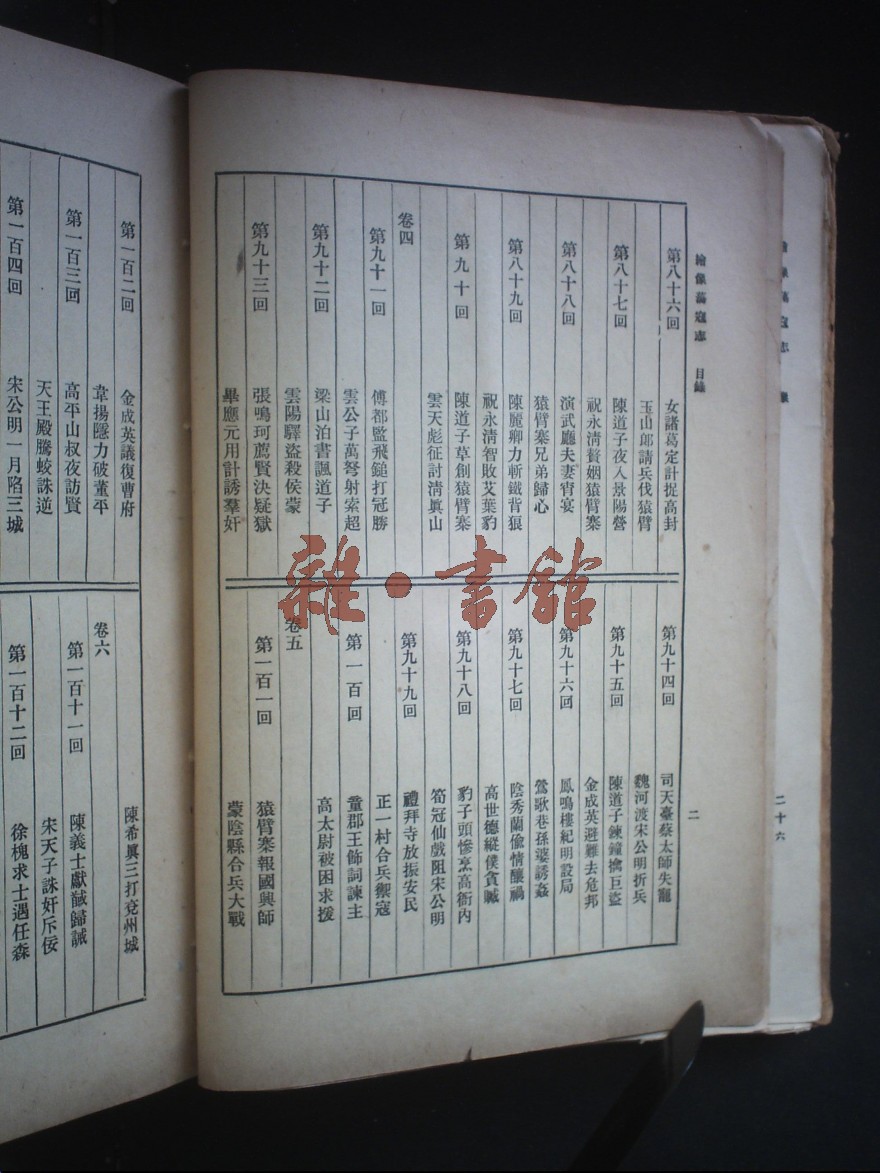 繪像蕩寇志 目錄
二
第八十六回 女諸葛定計捉高封
玉山郎請兵伐猿臂
第八十七回 陳道子夜入景陽營
祝永清贅姻猿臂寨
第八十八回 演武廳夫妻宵宴
猿臂寨兄弟歸心
第八十九回 陳麗卿力斬鐵背狼
祝永清智敗艾葉豹
第九十回 陳道子草創猿臂寨
雲天彪征討清眞山
卷四
第九十一回 傅都監飛鎚打冠勝
雲公子萬弩射索超
第九十二回 梁山泊書諷道子
雲陽驛盜殺侯蒙
第九十三回 張鳴珂薦賢決疑獄
畢應元用計誘羣奸
第九十四回 司天臺蔡太師失寵
魏河渡宋公明折兵
第九十五回 陳道子鍊鐘擒巨盜
金成英避難去危邦
第九十六回 鳳鳴樓紀明設局
鶯歌巷孫婆誘姦
第九十七回 陰秀蘭偸情釀禍
高世德縱僕貪贓
第九十八回 豹子頭慘烹高衙內
筍冠仙戲阻宋公明
第九十九回 禮拜寺放振安民
正一村合兵禦寇
第一百回 童郡王飾詞諫主
高太尉被困求援
卷五
第一百一回 猿臂寨報國興師
蒙陰縣合兵大戰
第一百二回 金成英議復曹府
韋揚隱力破董平
第一百三回 高平山叔夜訪賢
天王殿騰蛟誅逆
第一百四回 宋公明一月陷三城
陳希眞三打兗州城
卷六
第一百十一回 陳義士獻馘歸誠
宋天子誅奸斥佞
第一百十二回 徐槐求士遇任森
二十六
雜·書館